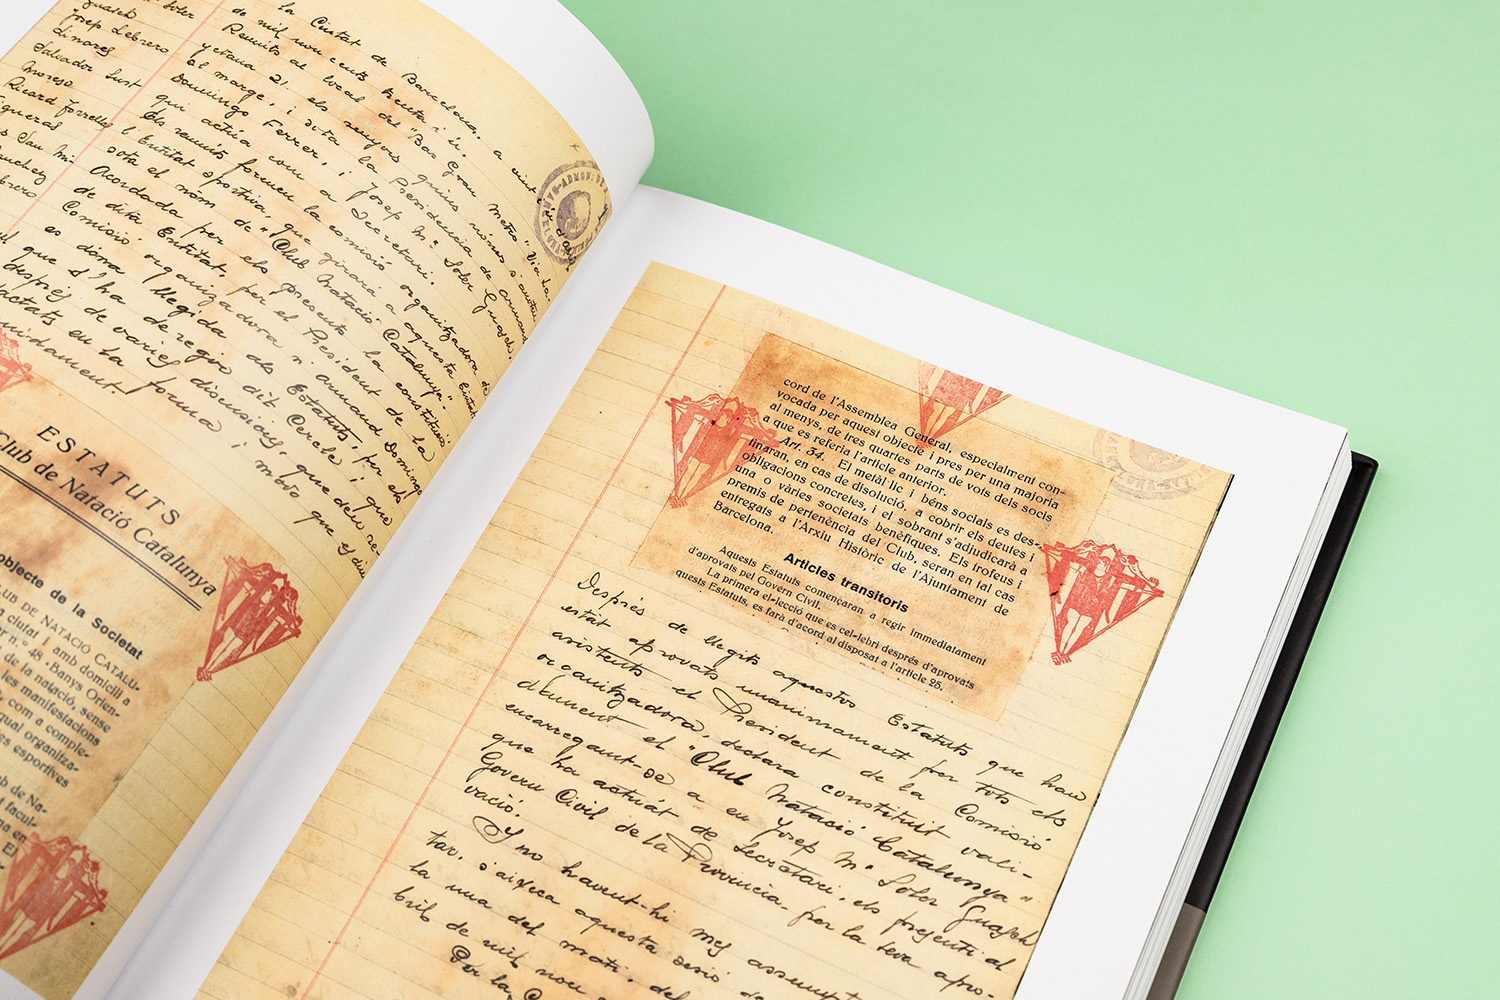 Soler
Josep Lebrero
Linares
Salvador Sust
Moreso
Ricard Torrellas
Figueras
San Mi-
la Ciutat de Barcelona, a vint
de mil nou cents trenta i ú.
Reunits al local del "Bar Gran Metro" Via La-
yetana 21, els senyors quins noms s'anoten
al marge, i sota la Presidencia de Armand
Domingo Ferrer, i Josep Mª Soler Guasch,
qui actúa com a Secretari.
Els reunits formen la comisió organitzadora de
l'Entitat esportiva, que girará a aquesta Ciutat
sota el nom de "Club Natació Catalunya".
Acordada per els presents la constitució
de dita Entitat, per el President de la
Comisió organizadora n'Armand Domingo
es dóna llegida als Estatuts, per els
que s'ha de regir dit Cercle i que
després de varies discusións, queden re-
dactats en la forma i modo que es diu
ESTATUTS
Club de Natació Catalunya
objecte de la Societat
CLUB DE NATACIÓ CATALU-
ciutat i amb domicili a
n.º 48 -Banys Orien-
de la natació, sense
les manifestacions
com a comple-
qual organitza-
es esportives
de Na-
facul-
en
El
cord de l'Assemblea General, especialment con-
vocada per aquest objecte i pres per una majoria
al menys, de tres quartes parts de vots dels socis
a que es referia l'article anterior.
Art. 34. El metàl·lic i béns socials es des-
tinaran, en cas de disolució, a cobrir els deutes i
obligacions concretes, i el sobrant s'adjudicarà a
una o vàries societats benèfiques. Els trofeus i
premis de pertenència del Club, seran en tal cas
entregats a l'Arxiu Històric de l'Ajuntament de
Barcelona.
Articles transitoris
Aquests Estatuts començaran a regir immediatament
d'aprovats pel Govern Civil.
La primera el·lecció que es cel·lebri després d'aprovats
quests Estatuts, es farà d'acord al disposat a l'article 25.
Després de llegits aquestos Estatuts que han
estat aprovats unanimament per tots els
asistents el President de la Comisió
organitzadora, declara constituit vali-
dament el "Club Natació Catalunya"
encarregant-se a en Josep Mª Soler Guasch
que ha actuát de Secretari, els presenti al
Govern Civil de la Provincia, per la seva apro-
vació.
Y no havent-hi mes assumpt
tar, s'aixeca aquesta sesió
la una del matí, del
bril de mil nou
Per la